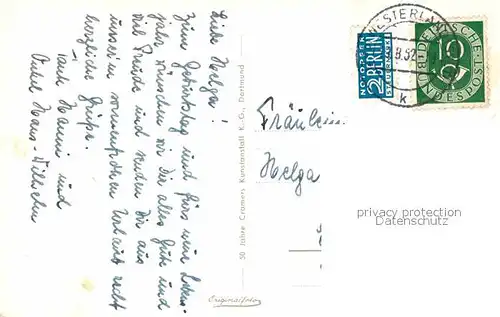 Liebe Helga!
Zum Geburtstag und fürs neue Lebens-
jahr wünschen wir Dir alles Gute und
viel Freude und senden Dir aus
unserem verregneten Urlaub recht
herzliche Grüße.
Tante Hanni und
Onkel Hans-Wilhelm
50 Jahre Cramers Kunstanstalt K.-G., Dortmund
Originalfoto
NOTOPFER
2 BERLIN
STEUERMARKE
WESTERLAND
8.52
k
DEUTSCHE
BUNDESPOST
10
Fräulein
Helga
privacy protection
veryimportantlot.com